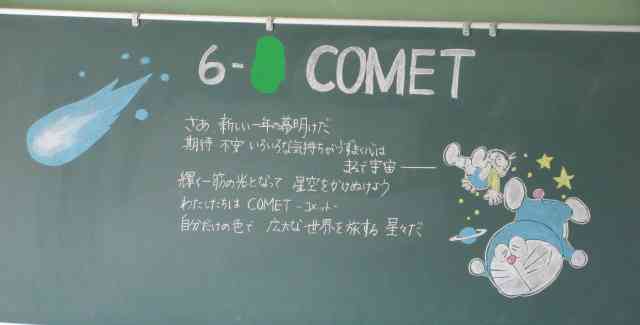 6- COMET
さあ 新しい一年の幕明けだ
期待 不安 いろいろな気持ちがうずまく心は
まるで宇宙――
輝く一筋の光となって 星空をかけぬけよう
わたしたちは COMET -コメット-
自分だけの色で 広大な世界を旅する 星々だ